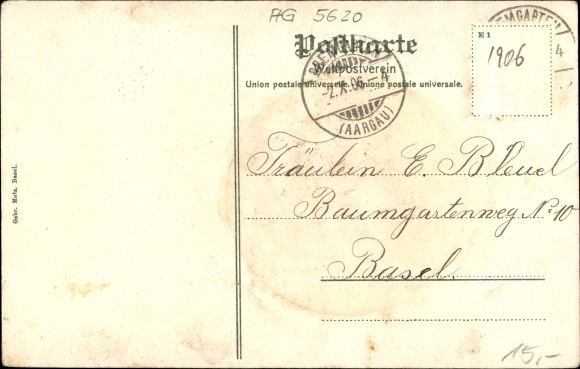 AG 5620
Postkarte
Weltpostverein
Union postale universelle. Unione postale universale.
BREMGARTEN
-2.X.06.-4
(AARGAU)
EMGARTEN
4
E 1
1906
Fräulein E. Bleuel
Baumgartenweg No. 10
Basel.
Gebr. Metz, Basel.
15,-